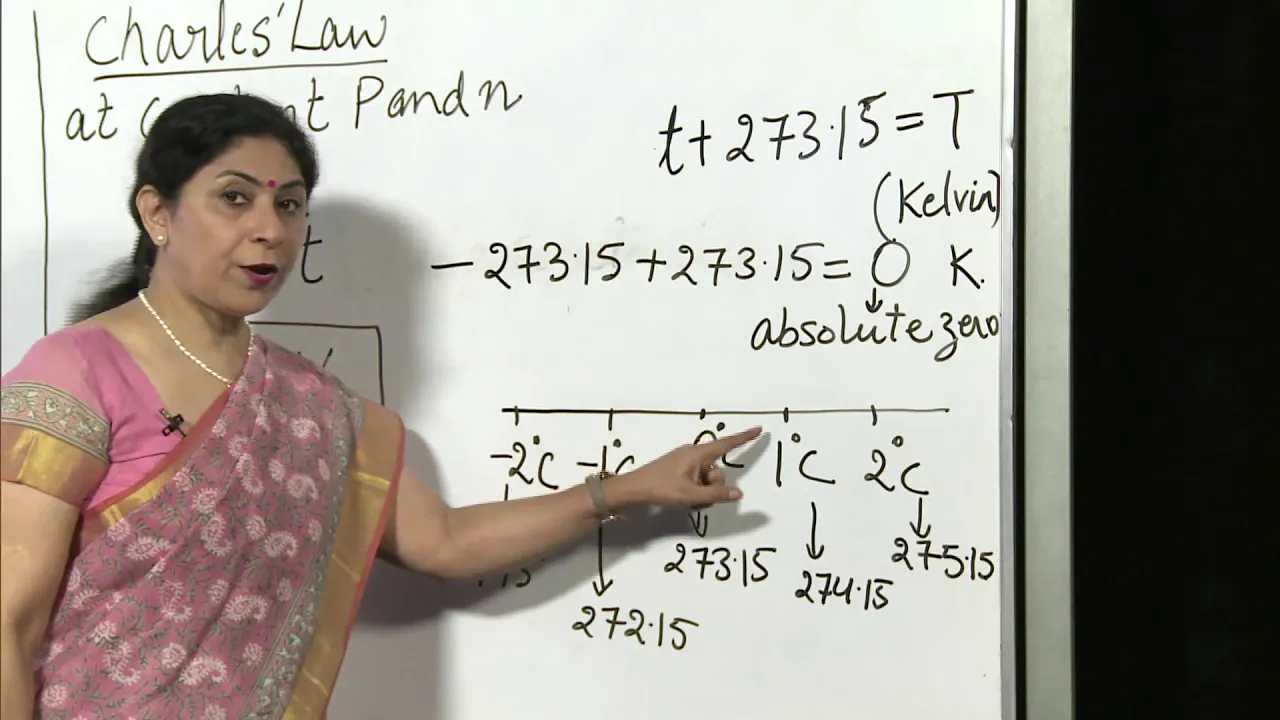 Charles' Law
at P and n
t + 273.15 = T
(Kelvin)
t
- 273.15 + 273.15 = 0 K.
absolute zero
-2°C -1°C 0°C 1°C 2°C
272.15 273.15 274.15 275.15